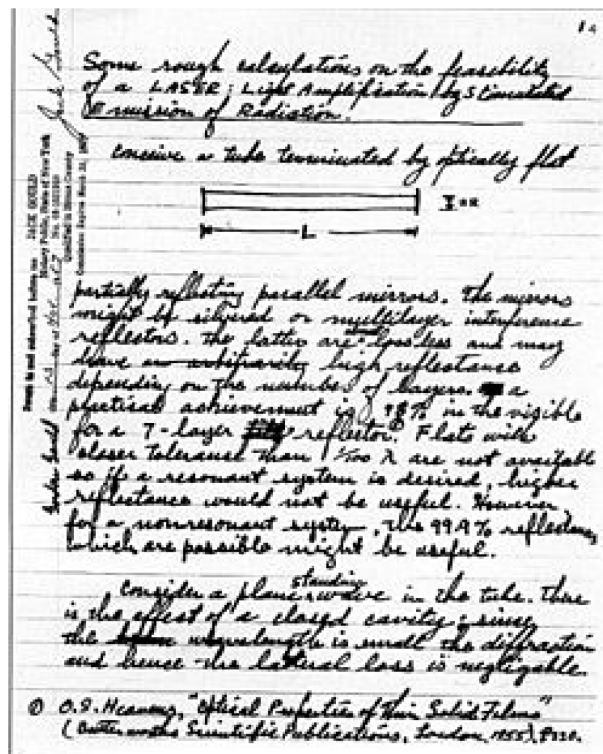 1.
Some rough calculations on the feasibility
of a LASER: Light Amplification by Stimulated
Emission of Radiation.
conceive a tube terminated by optically flat
L
partially reflecting parallel mirrors. The mirrors
might be silvered or multilayer interference
reflectors. The latter are loss less and may
have an arbitrarily high reflectance
depending on the number of layers. a
practical achievement is 98% in the visible
for a 7-layer reflector. Flats with
closer tolerance than 1/100 λ are not available
so if a resonant system is desired, higher
reflectance would not be useful. However
for a nonresonant system, the 99.9% reflectances
which are possible might be useful.
consider a plane standing wave in the tube. There
is the effect of a closed cavity; since
the wavelength is small the diffraction
and hence the lateral loss is negligable.
O.S. Heavens, "Optical Properties of Thin Solid Films"
(Butterworths Scientific Publications, London, 1955), p220.
JACK GOULD
Notary Public, State of New York
Qualified in Bronx County
Commission Expires March 30,
Gordon Gould
Jack Gould